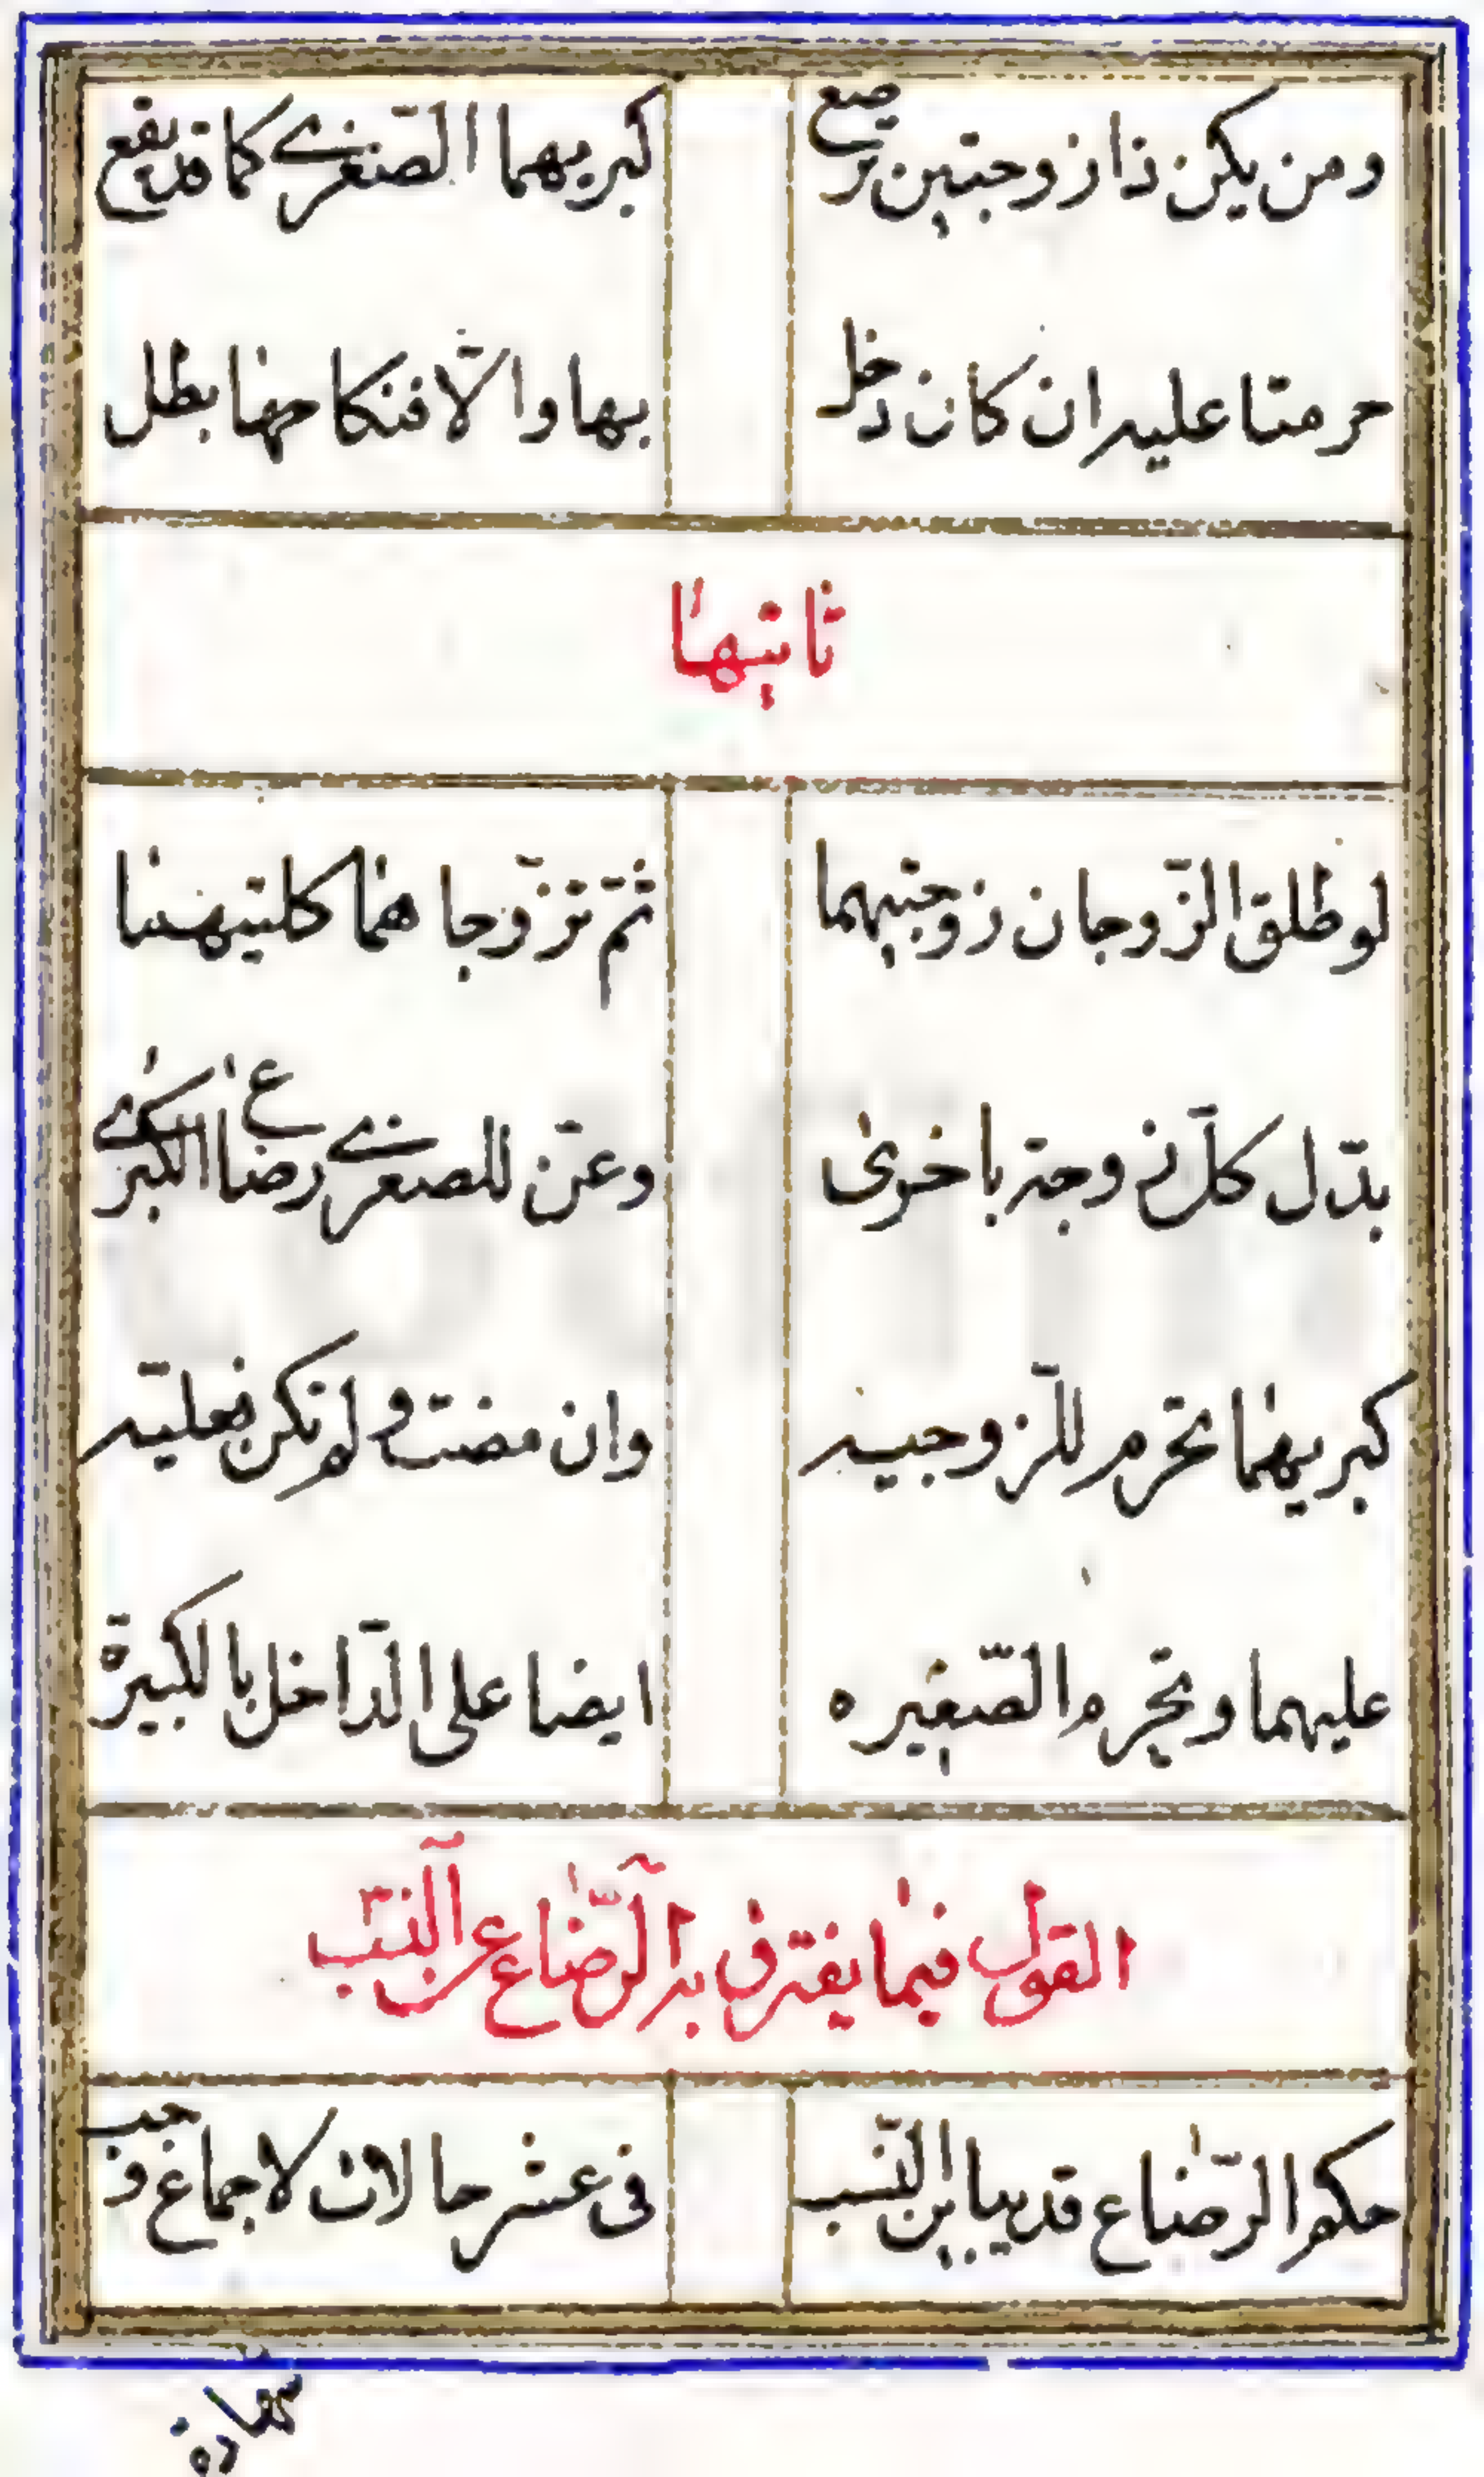 ومن يكن ذا زوجتين ترضع كبريهما الصغرى كما قد يقع
حرمتا عليه ان كان دخل بها والّا فنكاحها بطل
ثانيها
لو طلق الزّوجان زوجتيهما ثمّ تزوّجا هما كلتيهما
بدّل كلّ زوجة باخرى وعنّ للصغرى رضاع الكبرى
كبريهما تحرم للزّوجيه وان مضت ولم تكن فعليّه
عليهما وتحرم الصّغيره ايضا على الدّاخل بالكبيرة
القول فيما يفترق به الرّضاع عن النّسب
حكم الرّضاع قد يباين النّسب فى عشر حالات لاجماع وجب
شهادة